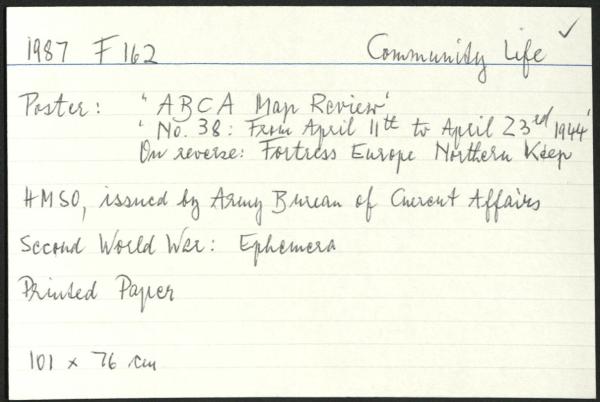 1987 F 162 Community Life ✓
Poster: 'ABCA Map Review'
'No. 38: From April 11th to April 23rd 1944'
On reverse: Fortress Europe Northern Keep
HMSO, issued by Army Bureau of Current Affairs
Second World War: Ephemera
Printed Paper
101 x 76 cm